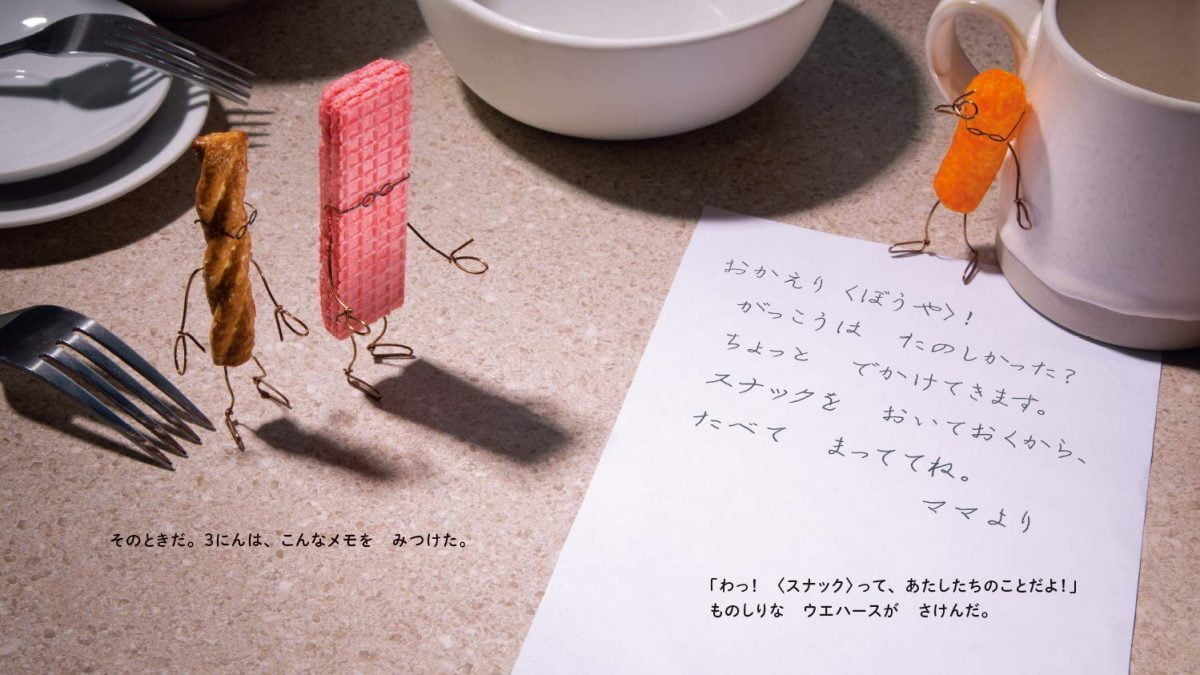 おかえり 〈ぼうや〉!
がっこうは たのしかった?
ちょっと でかけてきます。
スナックを おいておくから、
たべて まっててね。
ママより
そのときだ。3にんは、こんなメモを みつけた。
「わっ! 〈スナック〉って、あたしたちのことだよ!」
ものしりな ウエハースが さけんだ。